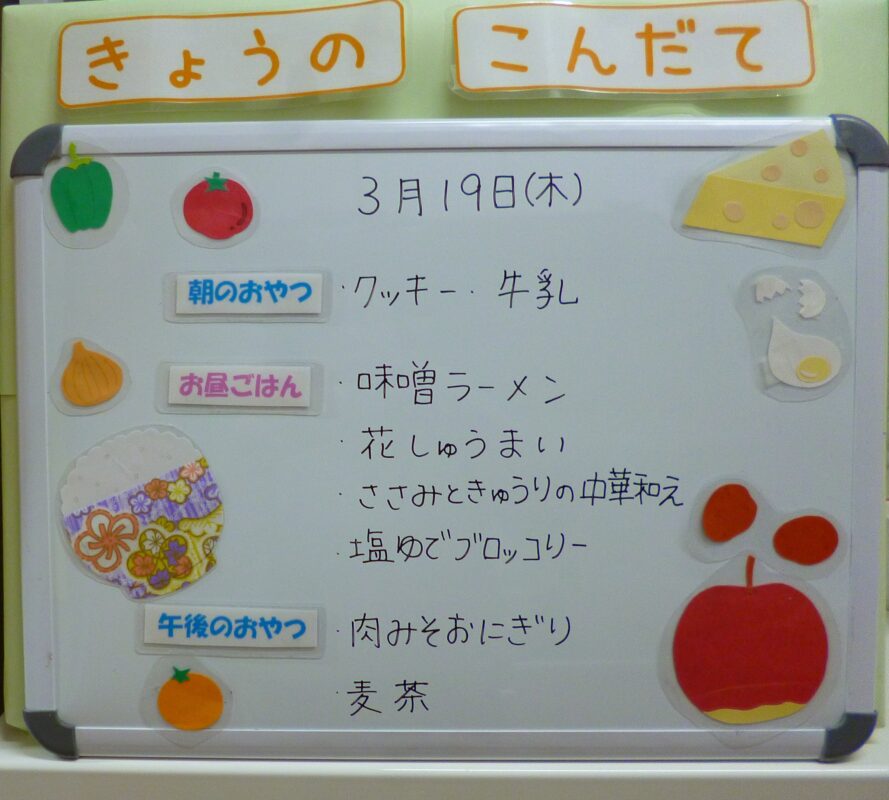 きょうの こんだて
3月19日(木)
朝のおやつ ・クッキー ・牛乳
お昼ごはん ・味噌ラーメン
・花しゅうまい
・ささみときゅうりの中華和え
・塩ゆでブロッコリー
午後のおやつ ・肉みそおにぎり
・麦茶